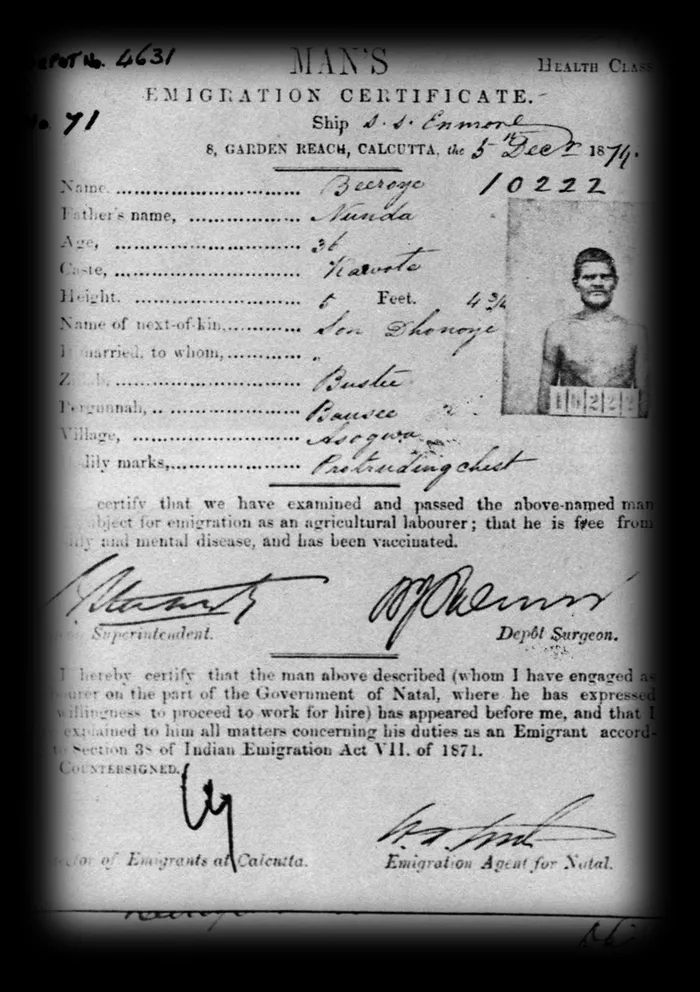 DEPOT No. 4631
MAN'S
HEALTH CLASS
EMIGRATION CERTIFICATE.
No. 71
Ship S. S. Enmore
8, GARDEN REACH, CALCUTTA, the 5th Decr 1874.
Name, Beeroye 10222
Father's name, Nunda
Age, 36
Caste,
Height. 5 Feet. 4 3/4
Name of next-of-kin, Son Dhonoye
If married, to whom, "
Bustee
Pergunnah, Bansee
Village, Asogwa
dily marks, Protruding chest
10222
certify that we have examined and passed the above-named man
bject for emigration as an agricultural labourer; that he is free from
ily and mental disease, and has been vaccinated.
Superintendent.
Depôt Surgeon.
I hereby certify that the man above described (whom I have engaged as
ourer on the part of the Government of Natal, where he has expressed
willingness to proceed to work for hire) has appeared before me, and that I
explained to him all matters concerning his duties as an Emigrant accord-
to Section 38 of Indian Emigration Act VII. of 1871.
COUNTERSIGNED.
ctor of Emigrants at Calcutta.
Emigration Agent for Natal.